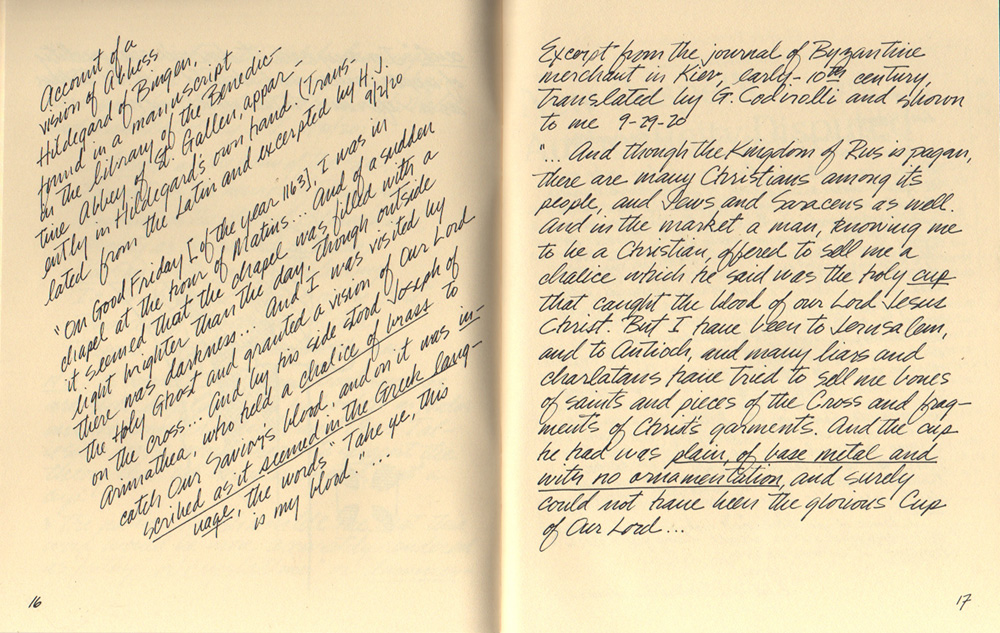 Account of a
vision of Abbess
Hildegard of Bingen,
found in a manuscript
in the library of the Benedic-
tine Abbey of St. Gallen, appar-
ently in Hildegard's own hand. (Trans-
lated from the Latin and excerpted by H. J.
9/2/20
"On Good Friday [of the year 1163], I was in
chapel at the hour of Matins... And of a sudden
it seemed that the chapel was filled with a
light brighter than the day, though outside
there was darkness... And I was visited by
the Holy Ghost and granted a vision of Our Lord
on the cross... And by his side stood Joseph of
Arimathea, who held a chalice of brass to
catch Our Savior's blood, and on it was in-
scribed as it seemed in the Greek lang-
uage, the words "Take ye, this
is my blood."...
16
Excerpt from the journal of Byzantine
merchant in Kiev, early-10th century,
translated by G. Codirolli and shown
to me 9-29-20
"... And though the Kingdom of Rus is pagan,
there are many Christians among its
people, and Jews and Saracens as well.
And in the market a man, knowing me
to be a Christian, offered to sell me a
chalice which he said was the holy cup
that caught the blood of our Lord Jesus
Christ. But I have been to Jerusalem,
and to Antioch, and many liars and
charlatans have tried to sell me bones
of saints and pieces of the Cross and frag-
ments of Christ's garments. And the cup
he had was plain, of base metal and
with no ornamentation, and surely
could not have been the glorious Cup
of Our Lord...
17